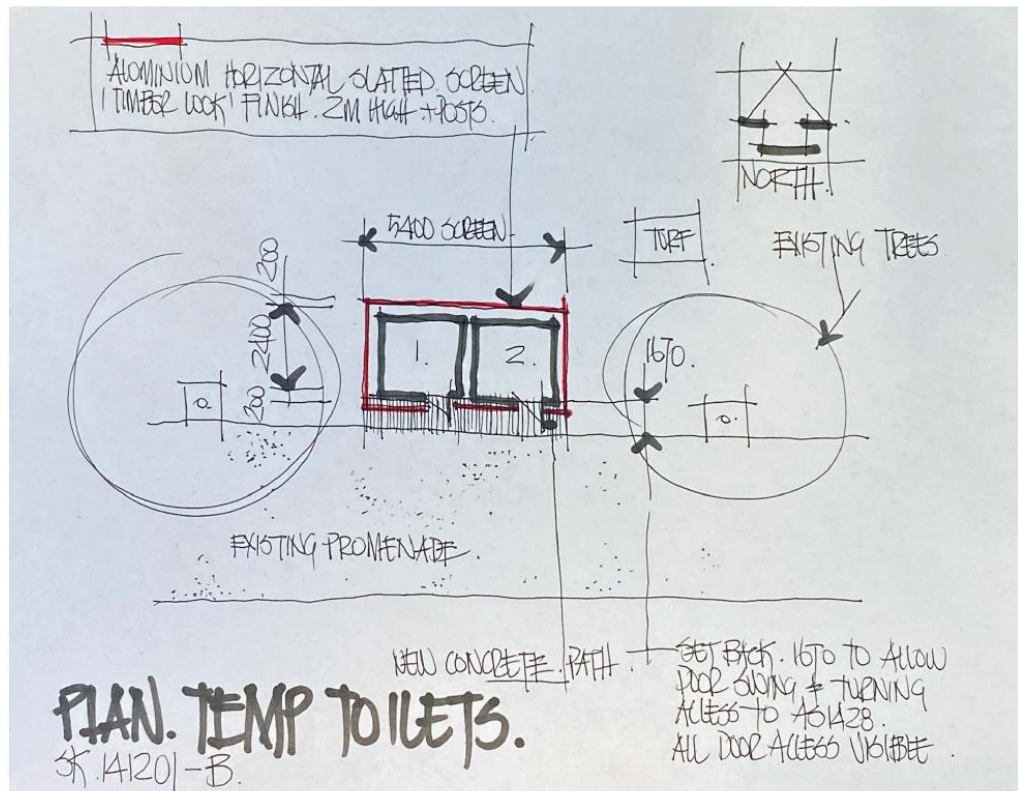 ALUMINIUM HORIZONTAL SLATTED SCREEN
'TIMBER LOOK' FINISH. 2M HIGH + POSTS.
NORTH.
5400 SCREEN
TURF
EXISTING TREES
200
2400
200
1.
2.
1670.
EXISTING PROMENADE.
NEW CONCRETE PATH.
SET BACK. 1670 TO ALLOW
DOOR SWING & TURNING
ACCESS TO AS1428.
ALL DOOR ACCESS VISIBLE.
PLAN. TEMP TOILETS.
SK.141201-B.